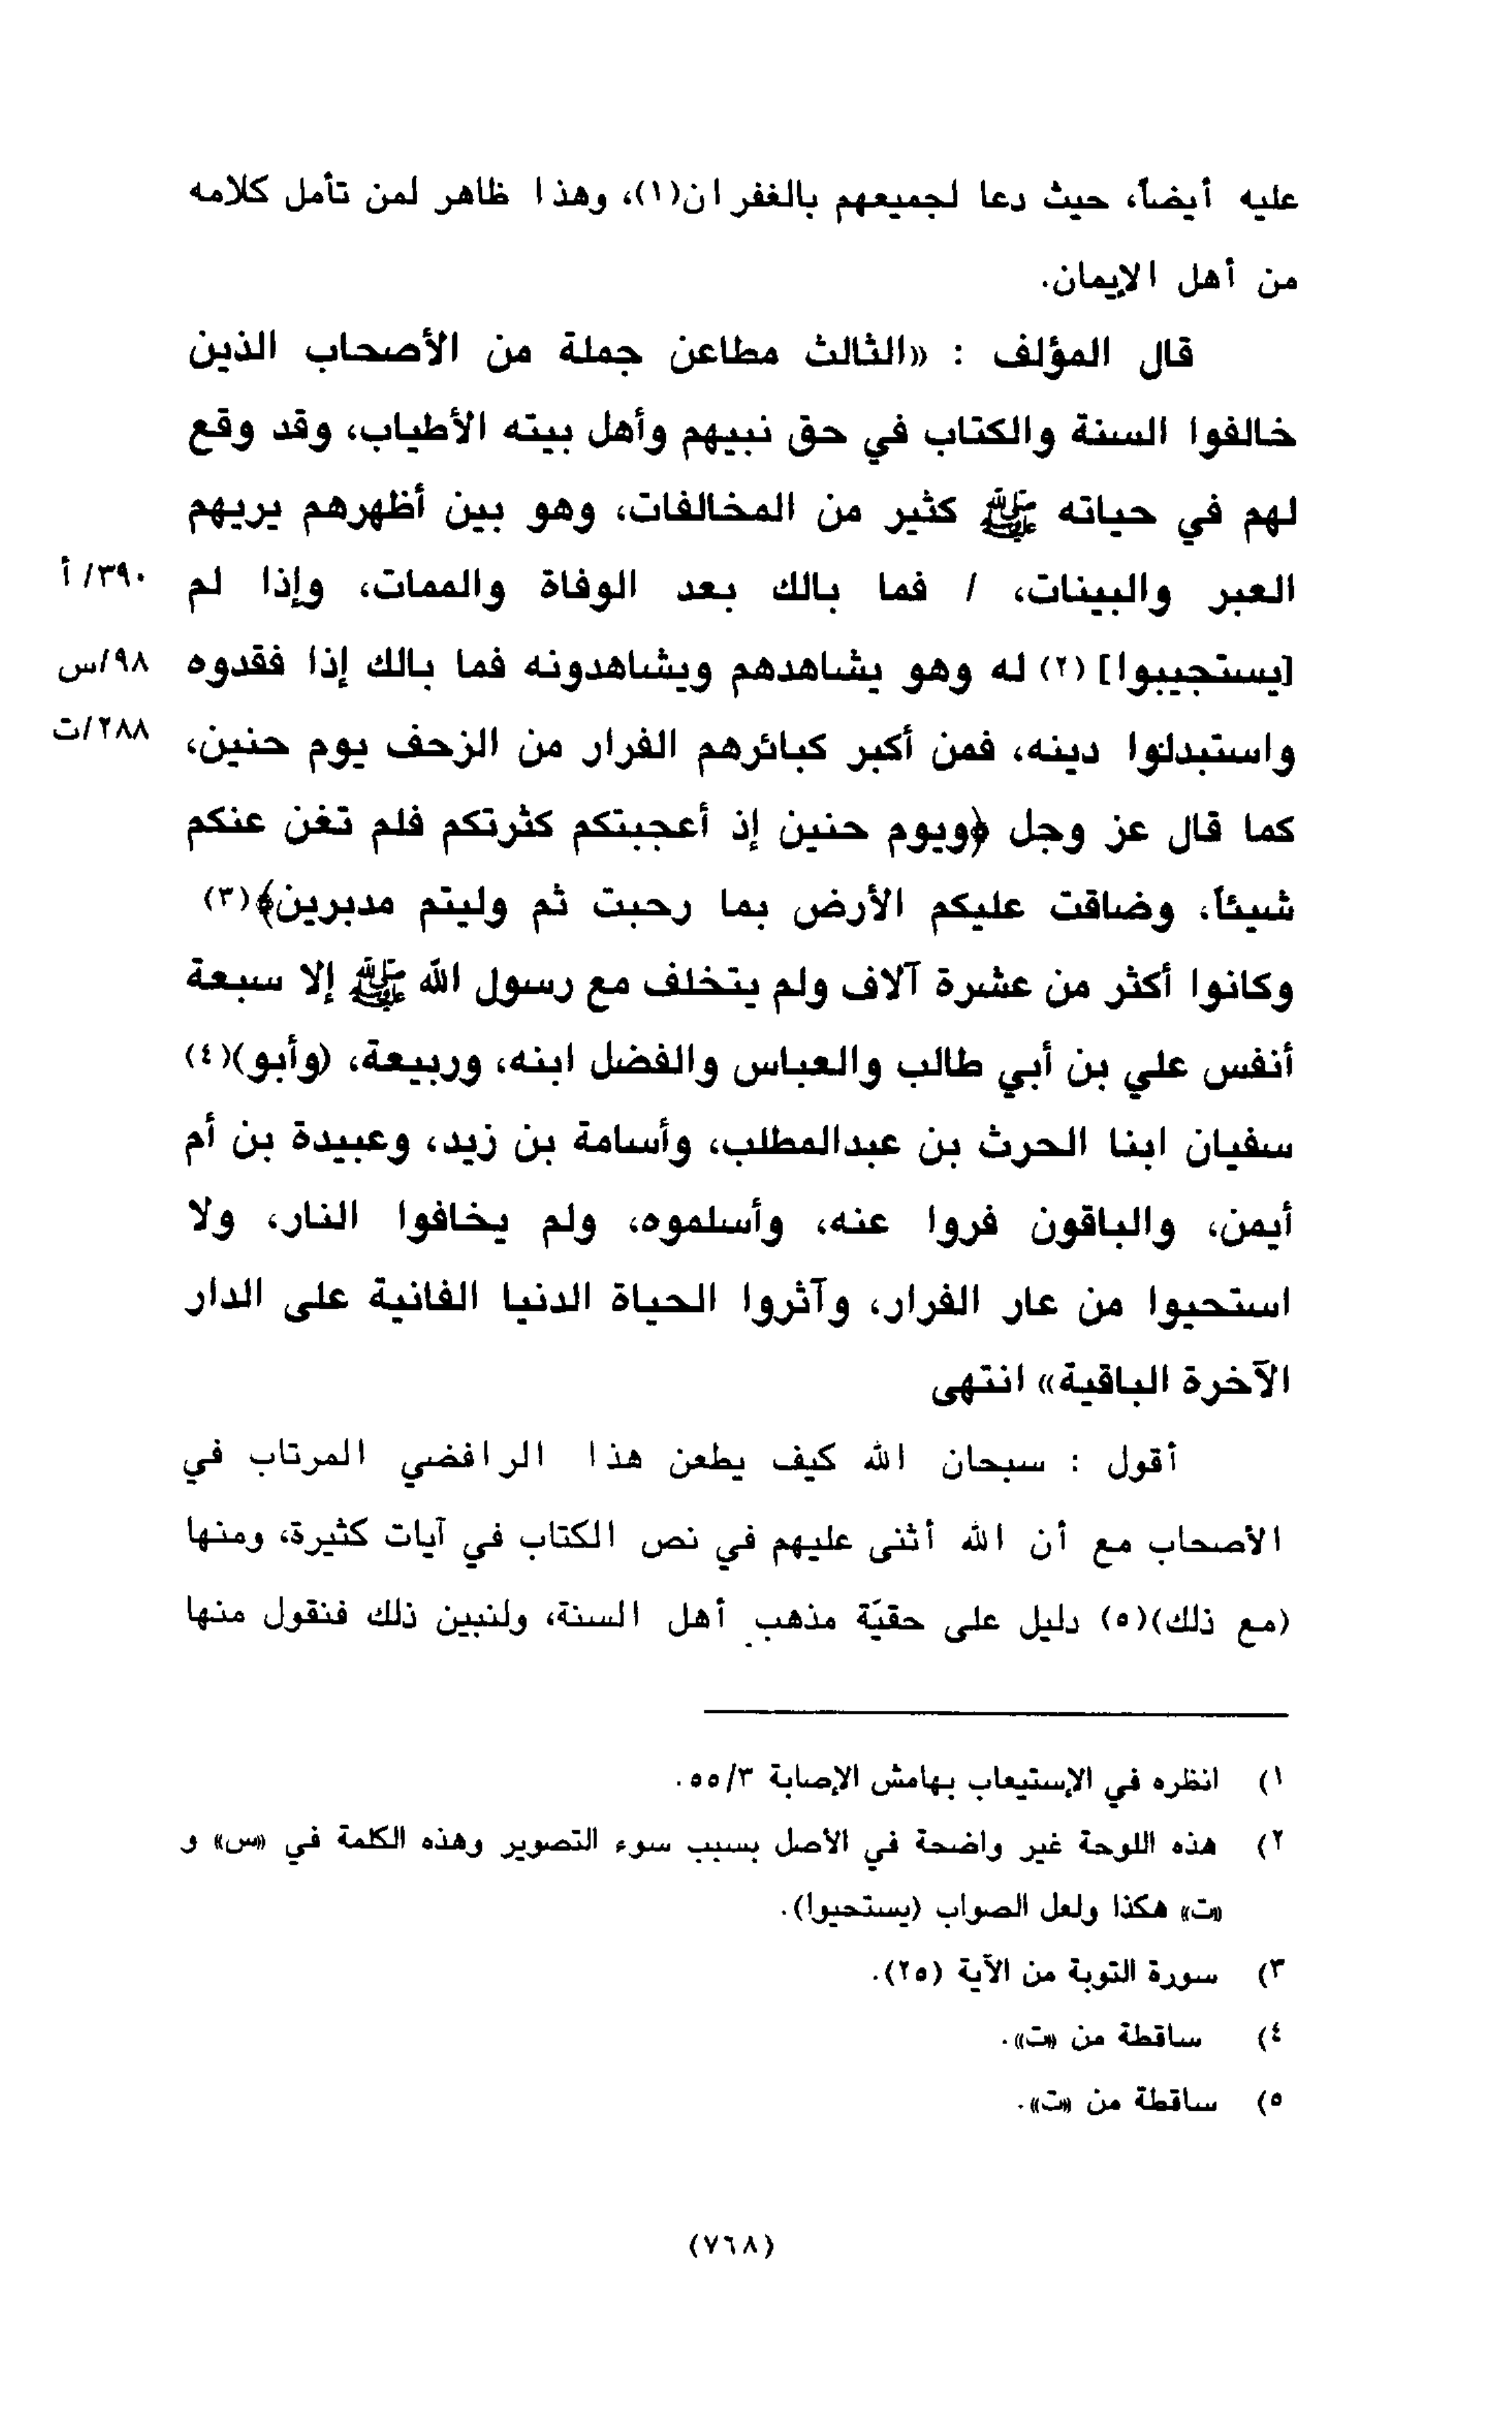 عليه أيضاً، حيث دعا لجميعهم بالغفران(١)، وهذا ظاهر لمن تأمل كلامه
من أهل الإيمان.
قال المؤلف : «الثالث مطاعن جملة من الأصحاب الذين
خالفوا السنة والكتاب في حق نبيهم وأهل بيته الأطياب، وقد وقع
لهم في حياته ﷺ كثير من المخالفات، وهو بين أظهرهم يريهم
العبر والبينات، / فما بالك بعد الوفاة والممات، وإذا لم
٣٩٠/ أ
[يستجيبوا] (٢) له وهو يشاهدهم ويشاهدونه فما بالك إذا فقدوه
٩٨/س
واستبدلوا دينه، فمن أكبر كبائرهم الفرار من الزحف يوم حنين،
٢٨٨/ت
كما قال عز وجل ﴿ويوم حنين إذ أعجبتكم كثرتكم فلم تغن عنكم
شيئاً، وضاقت عليكم الأرض بما رحبت ثم وليتم مدبرين﴾(٣)
وكانوا أكثر من عشرة آلاف ولم يتخلف مع رسول الله ﷺ إلا سبعة
أنفس علي بن أبي طالب والعباس والفضل ابنه، وربيعة، (وأبو)(٤)
سفيان ابنا الحرث بن عبدالمطلب، وأسامة بن زيد، وعبيدة بن أم
أيمن، والباقون فروا عنه، وأسلموه، ولم يخافوا النار، ولا
استحيوا من عار الفرار، وآثروا الحياة الدنيا الفانية على الدار
الآخرة الباقية» انتهى
أقول : سبحان الله كيف يطعن هذا الرافضي المرتاب في
الأصحاب مع أن الله أثنى عليهم في نص الكتاب في آيات كثيرة، ومنها
(مع ذلك)(٥) دليل على حقيّة مذهب أهل السنة، ولنبين ذلك فنقول منها
١) انظره في الإستيعاب بهامش الإصابة ٥٥/٣.
٢) هذه اللوحة غير واضحة في الأصل بسبب سوء التصوير وهذه الكلمة في «س» و
«ت» هكذا ولعل الصواب (يستحيوا).
٣) سورة التوبة من الآية (٢٥).
٤) ساقطة من «ت».
٥) ساقطة من «ت».
(٧٦٨)